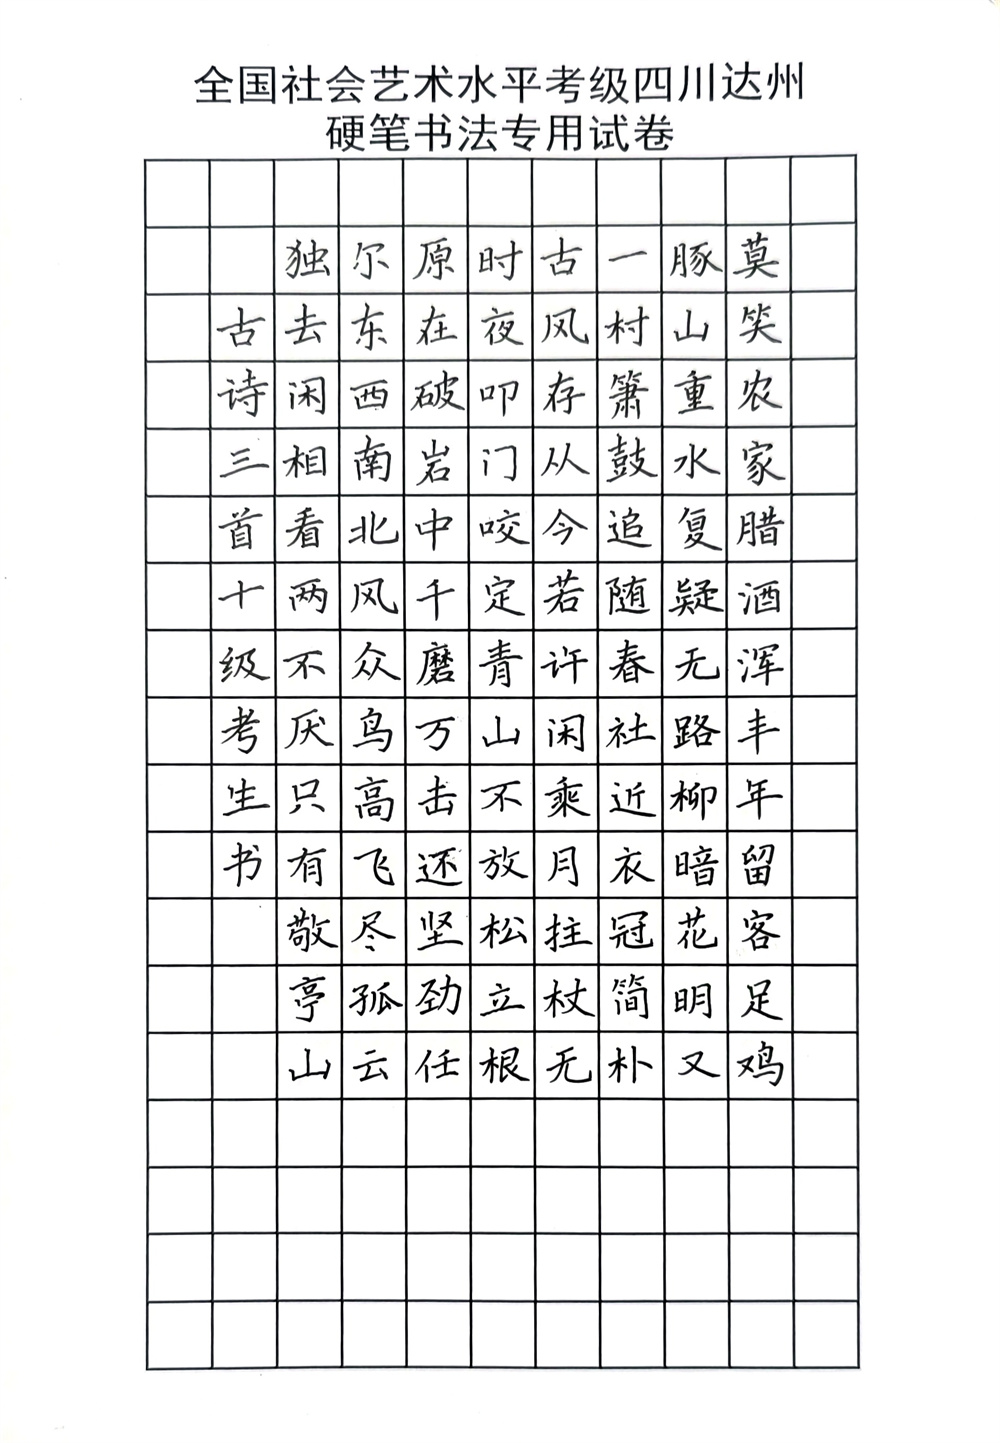 全国社会艺术水平考级四川达州
硬笔书法专用试卷
莫笑农家腊酒浑丰年留客足鸡
豚山重水复疑无路柳暗花明又
一村箫鼓追随春社近衣冠简朴
古风存从今若许闲乘月拄杖无
时夜叩门咬定青山不放松立根
原在破岩中千磨万击还坚劲任
尔东西南北风众鸟高飞尽孤云
独去闲相看两不厌只有敬亭山
古诗三首十级考生书